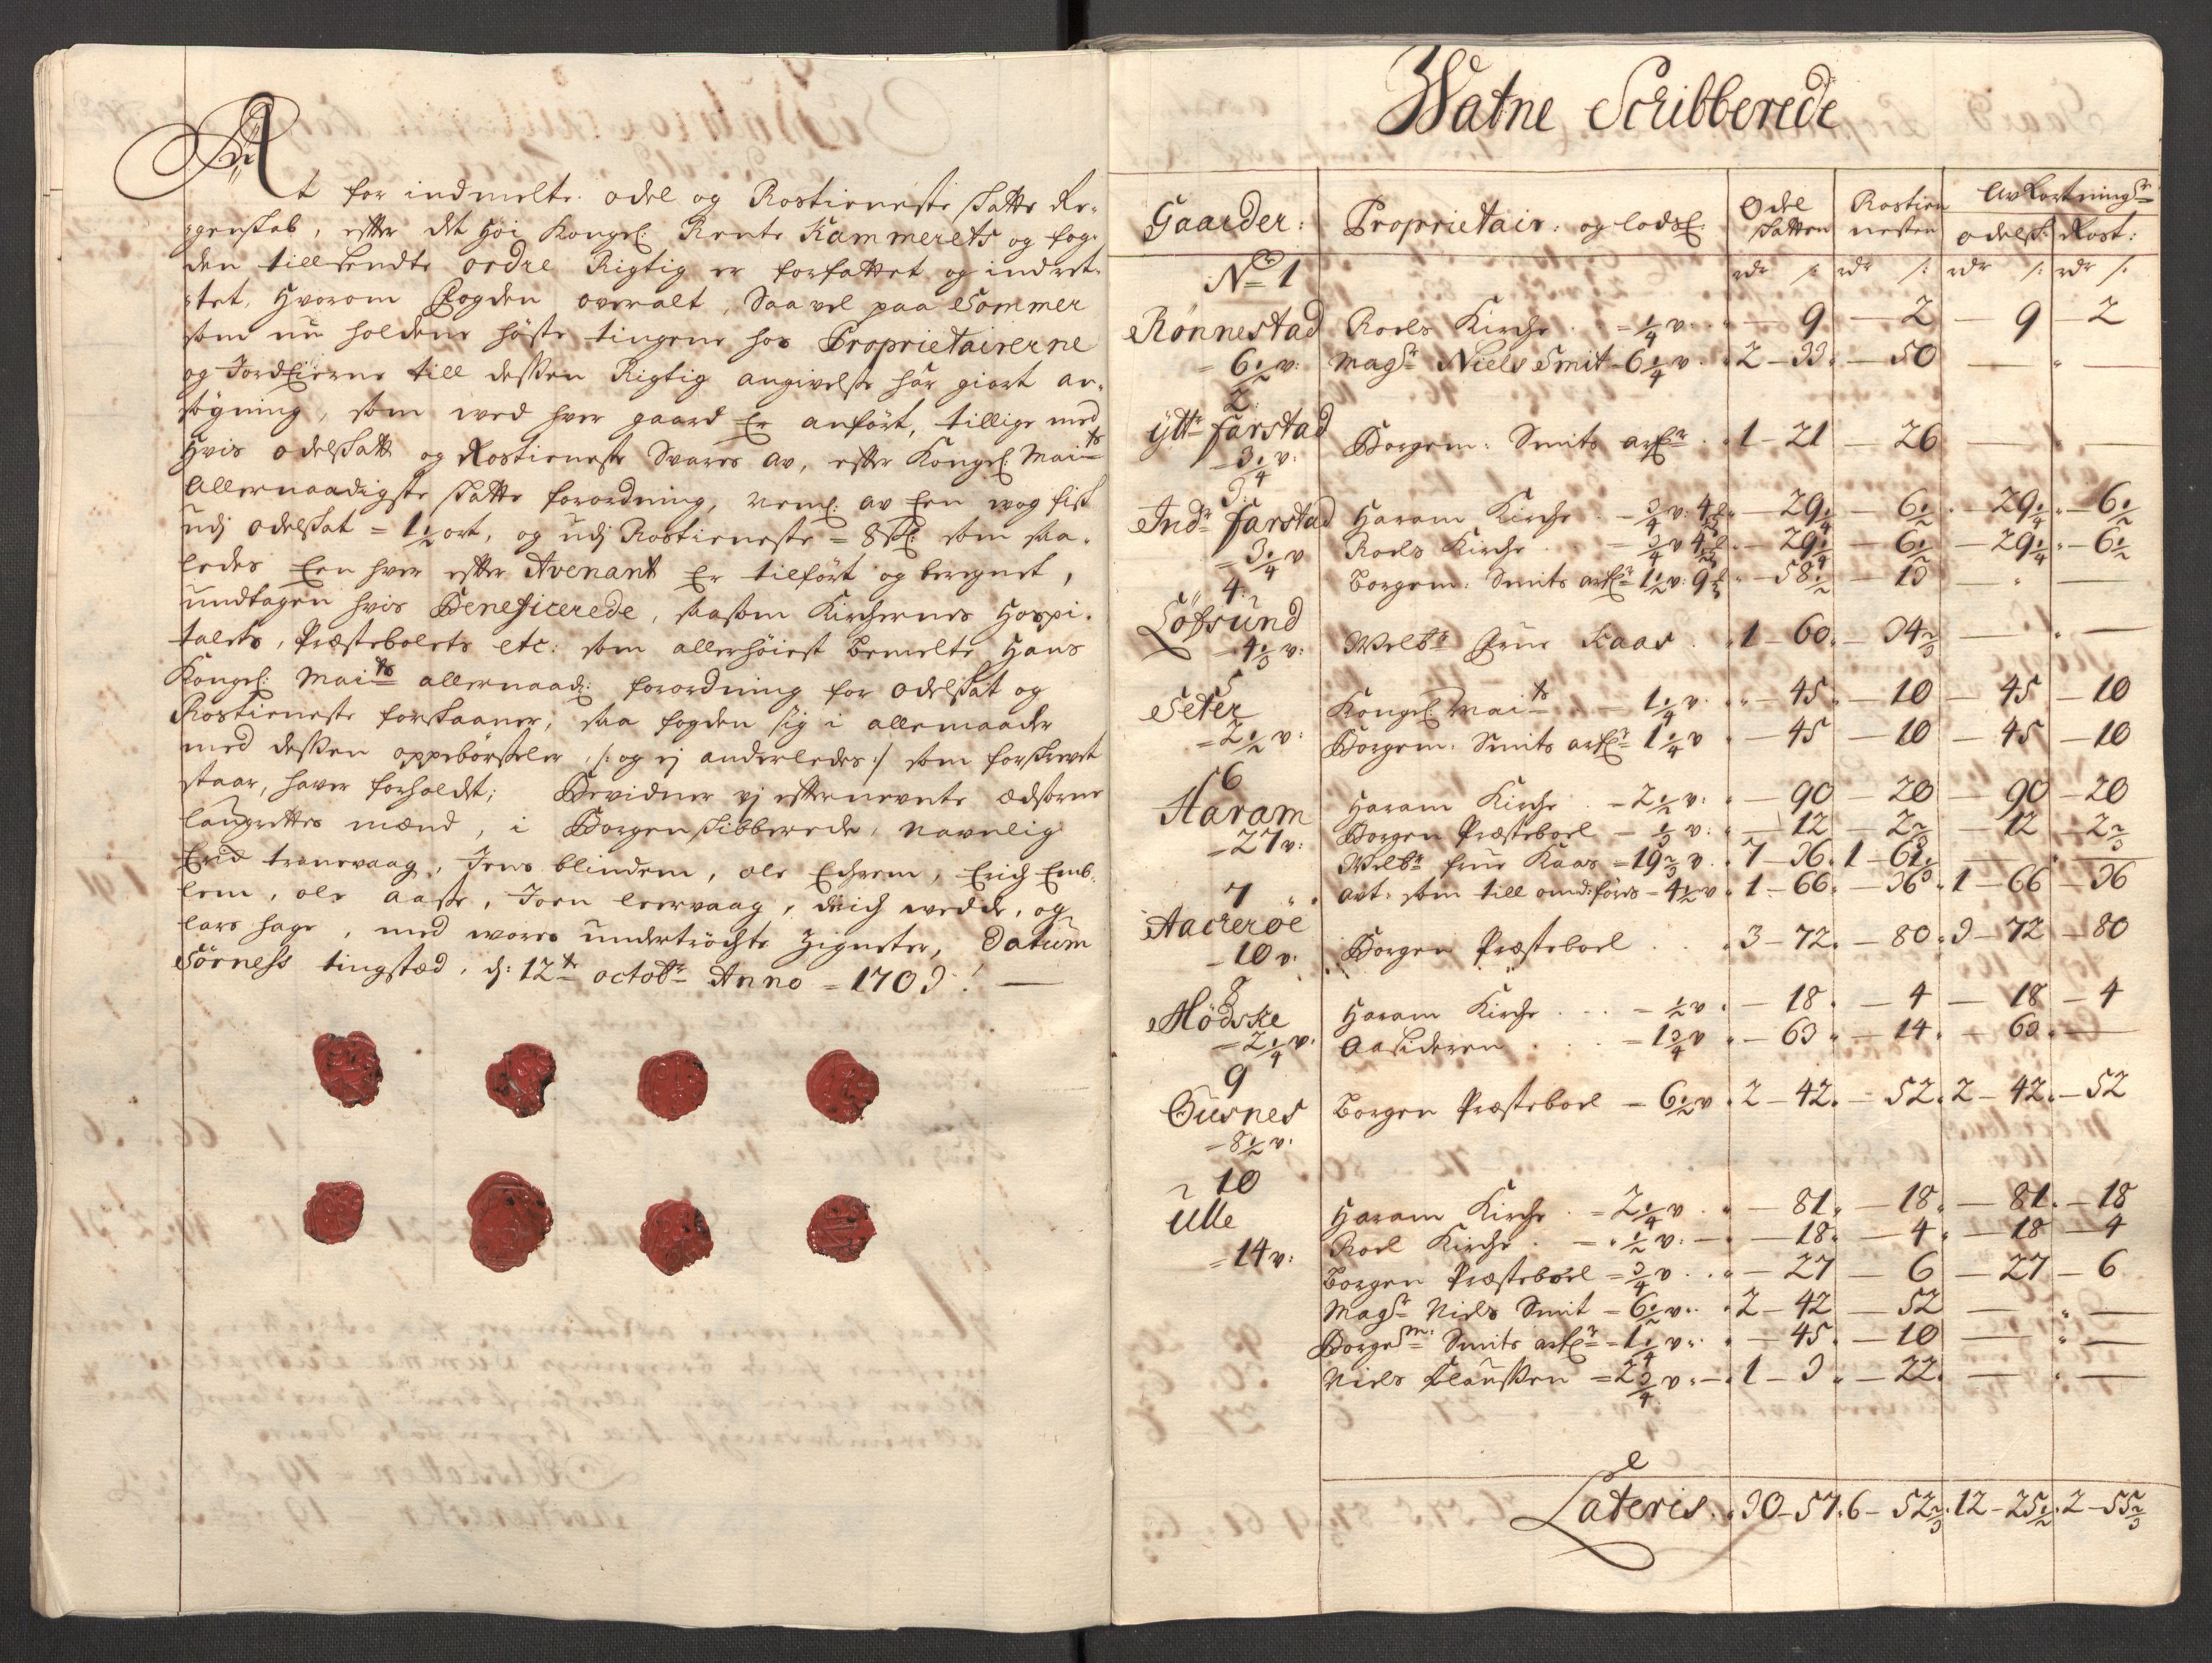 At for indmelte odel og Rostieneste skatte Re-
genskab, efter det Høi Kongel: Rente Kammerets og fog-
den tillsendte ordre Rigtig er forfattet og indret-
tet, Hvorom Fogden overalt, Saa vel paa Sommer
som nu holdene høste tingene hos Proprietairerne
og Jordeierne till dessen Rigtig angivelse har giort an-
søgning, som ved hver gaard Er anført, tillige med
Hvis odelskatt og Rostieneste Svares av, efter Kongel: Mai.ts
Allernaadigste skatte forordning, neml: av Een wog fisk
udj odelskat = 1 1/2 ort, og udj Rostieneste = 8 s: som saa-
ledes Een hver efter Avenant Er tilført og beregnet,
undtagen hvis Beneficerede, saasom Kirchernes Hospi-
talets, Præstebolets etc: som allerhøiest bemelte Hans
Kongel: Mai.ts allernaad: forordning for odelskat og
Rostieneste forskaaner, saa fogden sig i allemaader
med dessen oppebørseler /: og ej anderledes :/ som forskrevet
staar, haver forholdt; Bevidner vj efternevnte Edsorne
laugrettes mænd, i Borgen skibberede, Navnlig
Erid tranevaag, Jens blindem, ole Echrem, Erich Emb-
lem, ole Aasse, Joen leervaag, wedde, og
lars hage, med wores undertrøchte Zigneter, Datum
Sørness tingstæd, d: 12.te octobr: Anno = 1703 !
Watne Scribberede
Gaarder: Proprietair: og lodsE: Odel skatten Rostien nesten Avkortning
odelsk: Rost:
No 1 rdr s: rdr s: rdr s: rdr s:
Rønnestad Roels Kirche = 1/4 v: — 9 — 2 — 9 — 2
= 6 1/2 v: Magr Niels Smit - 6 1/4 v 2 - 33 — 50
2:
yttr farstad Borgem: Smits arf: 1 - 21 — 26
= 3 1/4 v:
3:
Indr farstad Haram Kirche - 3/4 v: — 29 1/4 — 6 1/2 — 29 1/4 — 6 1/2
= 3 1/4 v Roels Kirche = 3/4 v — 29 1/4 — 6 1/2 — 29 1/4 — 6 1/2
4: Borgem: Smits arf: 1 1/2 v: — 58 1/2 — 13
Løfsund Welbr Frue Kaas 1 - 60 — 34 2/3
- 4 1/3 v:
5
Seter Kongel: Mai.ts - 1 1/4 v — 45 — 10 — 45 — 10
= 2 1/2 v: Borgem: Smits arf: 1 1/4 v — 45 — 10 — 45 — 10
6
Haram Haram Kirche - 2 1/2 v: — 90 — 20 — 90 — 20
= 27 v: Borgen Præsteboel - 1/3 v: — 12 — 2 2/3 — 12 — 2 2/3
Welbr frue Kaas = 19 2/3 v. 7 - 36. 1 - 61
7 avt: som till omd: føres - 4 1/2 v 1 - 66 — 36 1 - 66 — 36
Aachrøe Borgen Præsteboel 3 - 72 — 80 3 - 72 — 80
- 10 v:
8
Hødske Haram Kirche - 1/2 v — 18 — 4 — 18 — 4
= 2 1/4 v: = 1 3/4 v — 63 — 14 — 63
9
Gusnes Borgen Præsteboel - 6 1/2 v 2 - 42 — 52 2 - 42 — 52
= 8 1/2 v:
10
Ulle Haram Kirche = 2 1/4 v — 81 — 18 — 81 — 18
= 14 v: Roel Kirche - 1/2 v: — 18 — 4 — 18 — 4
Borgen Præsteboel = 3/4 v — 27 — 6 — 27 — 6
Magr Niels Smit - 6 1/2 v 2 - 42 — 52
Borgem: Smits arf: - 1 1/4 v — 45 — 10
Niels Claussen = 2 3/4 v 1 - 3 — 22
Lateris 30 - 57 6 - 52 2/3 12 - 25 1/2 2 - 55 2/3